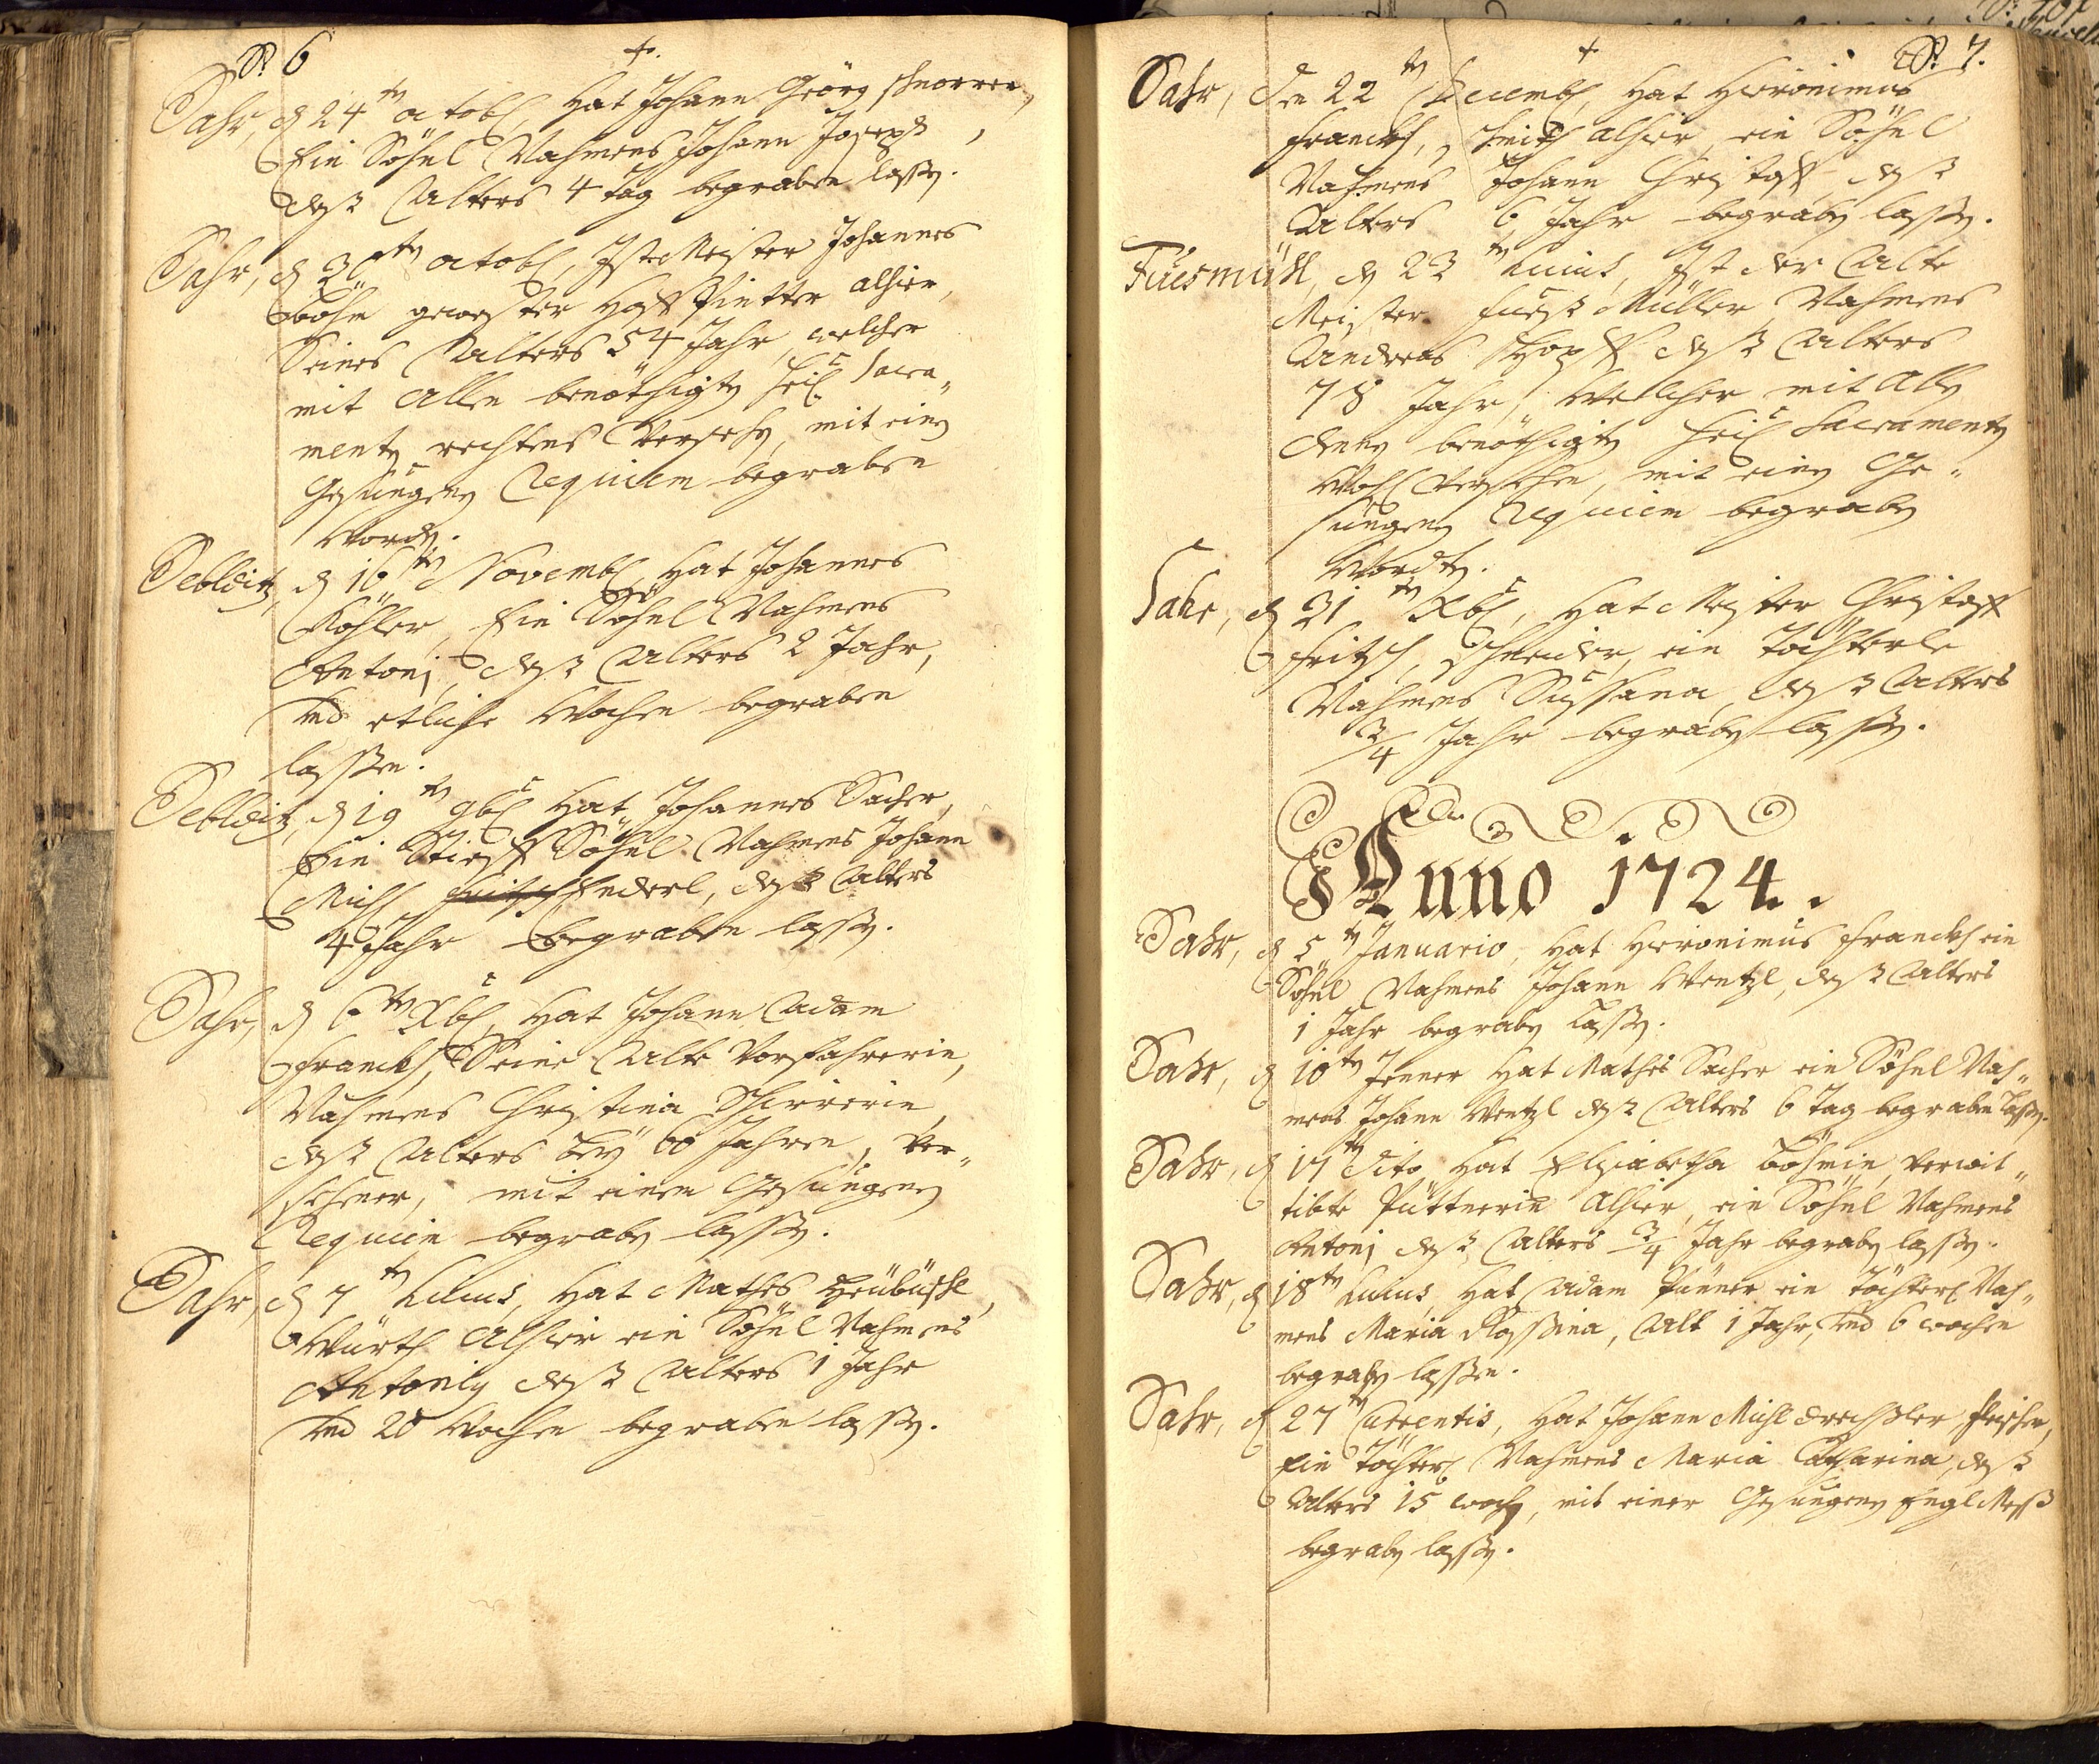 6
Sahr, d 24ten octob, Hat Johann Geörg
Ein Söhnl Nahmens Johann Joseph,
deß Alters 4 tag begraben laßen.
Sahr, d octob, Ist Meister Johannes
Böhm gewester alhier,
Seines Alters 54 Jahr, welcher
mit Allen benöthigten heil Sacra„
menten rechtens Versehen, mit einen
Gesungenen Requiem begraben
worden.
Seblditz, d 16ten Novemb, Hat Johannes
Köhler, Ein Söhnl Nahmens
Antoni, deß Alters 2 Jahr,
und etliche Wochen begraben
laßen.
Seblditz, d 19ten 9b, Hat Johannes Sacher,
Ein Stieff Söhnl Nahmens Johann
Mich Enderl, deß Alters
4 Jahr begraben laßen.
Sahr, d 6ten Xb, Hat Johann Adam
Franckh, Seine Alte Vorfahrerin,
Nahmens Christina
deß Alters bey 66 Jahren, Ver„
sehener, mit einem Gesungenen
Requiem begraben laßen.
Sahr, d 7ten huius, Hat Mathes
Würth Alhier ein Söhnl Nahmens
Antonių deß Alters 1 Jahr
und 20 Wochen begraben laßen.
7.
Sahr, den 22ten Decemb, Hat Hieronimus
Franckh, alhier, ein Söhnl
Nahmens Johann Christoff deß
Alters 6 Jahr begraben laßen.
Fuesmühl, d 23ten huius, Ist der Alte
Meister Fueß Müller, Nahmens
Andreas deß Alters
78 Jahr, Welcher mit Allen
denen benöthigten heil Sacramenten
Wohl Versehen, mit einen Ge„
sungenen Requiem begraben
Worden.
Sahr, d 31ten Xb, Hat Meister Christoff
Fritsch, Schneider, ein Töchterle
Nahmens Sussana, deß Alters
3/4 Jahr begraben laßen.
Anno 1724.
Sahr, d 5ten Januario, Hat Hieronimus Franckh ein
Söhnl Nahmens Johann Wentzl, deß Alters
1 Jahr begraben laßen.
Sahr, d 10ten Jenner Hat Mathes Sacher ein Söhnl Nah„
mens Johann Wentzl deß Alters 6 Tag begraben laßen.
Sahr, d 17ten dito, Hat Elisabetha Böhmin, verwit„
tibte Püttnerin Alhier, ein Söhnl Nahmens
Antoni deß Alters 3/4 Jahr begraben laßen.
Sahr, d 18ten huius, Hat Adam ein Töchterl Nah„
mens Maria Rossina, Alt 1 Jahr, und 6 wochen
begraben laßen.
Sahr, d 27ten Currentis, Hat Johann Michl Drechßler Fleischer,
Ein Töchterl Nahmens Maria Catharina, deß
Alters 15 wochen, mit einer Gesungenen Engl Meß
begraben laßen.